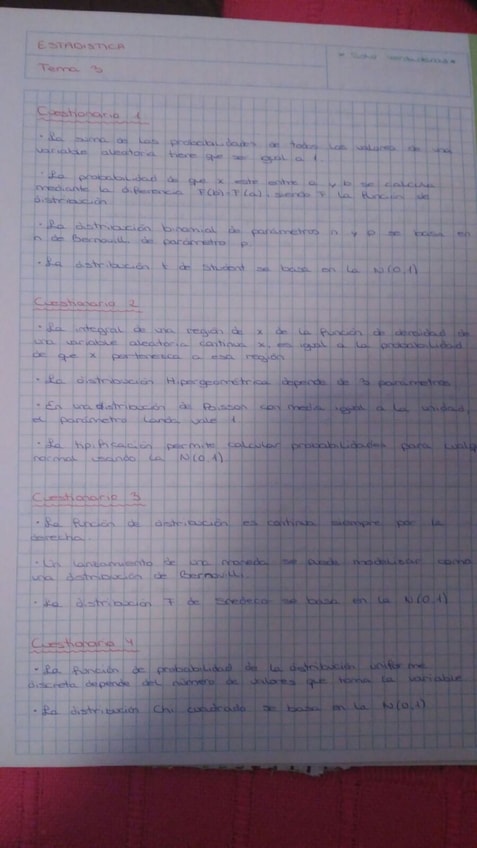 ESTADISTICA
Tema 3
* Solo verdaderas *
Cuestionario 1
· La suma de las probabilidades de todos los valores de una
variable aleatoria tiene que ser igual a 1.
· La probabilidad de que x este entre a y b se calcula
mediante la diferencia F(b)-F(a), siendo F la función de
distribución.
· La distribución binomial de parametros n y p se basa en
n de Bernouilli de parámetro p.
· La distribución t de Student se basa en la N(0,1)
Cuestionario 2
· La integral de una región de x de la función de densidad de
una variable aleatoria continua x, es igual a la probabilidad
de que x pertenezca a esa región
· La distribución Hipergeométrica depende de 3 parametros
· En una distribución de Poisson con media igual a la unidad,
el parámetro landa vale 1.
· La tipificación permite calcular probabilidades para
normal usando la N(0,1).
Cuestionario 3
· La función de distribución es continua siempre por la
derecha.
· Un lanzamiento de una moneda se puede modelizar como
una distribución de Bernouilli.
· La distribución F de Snedecor se basa en la N(0,1)
Cuestionario 4
· La función de probabilidad de la distribución uniforme
discreta depende del número de valores que toma la variable.
· La distribución Chi cuadrado se basa en la N(0,1)